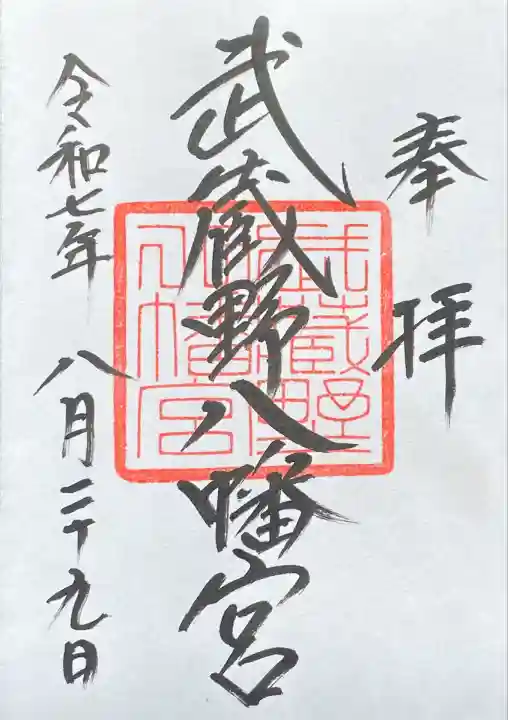 奉拝
武蔵野八幡宮
武蔵野
八幡宮
令和七年八月二十九日